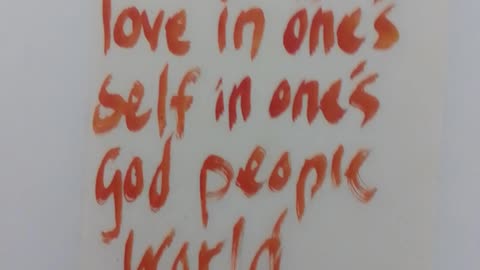 love in one's
self in one's
god people
world